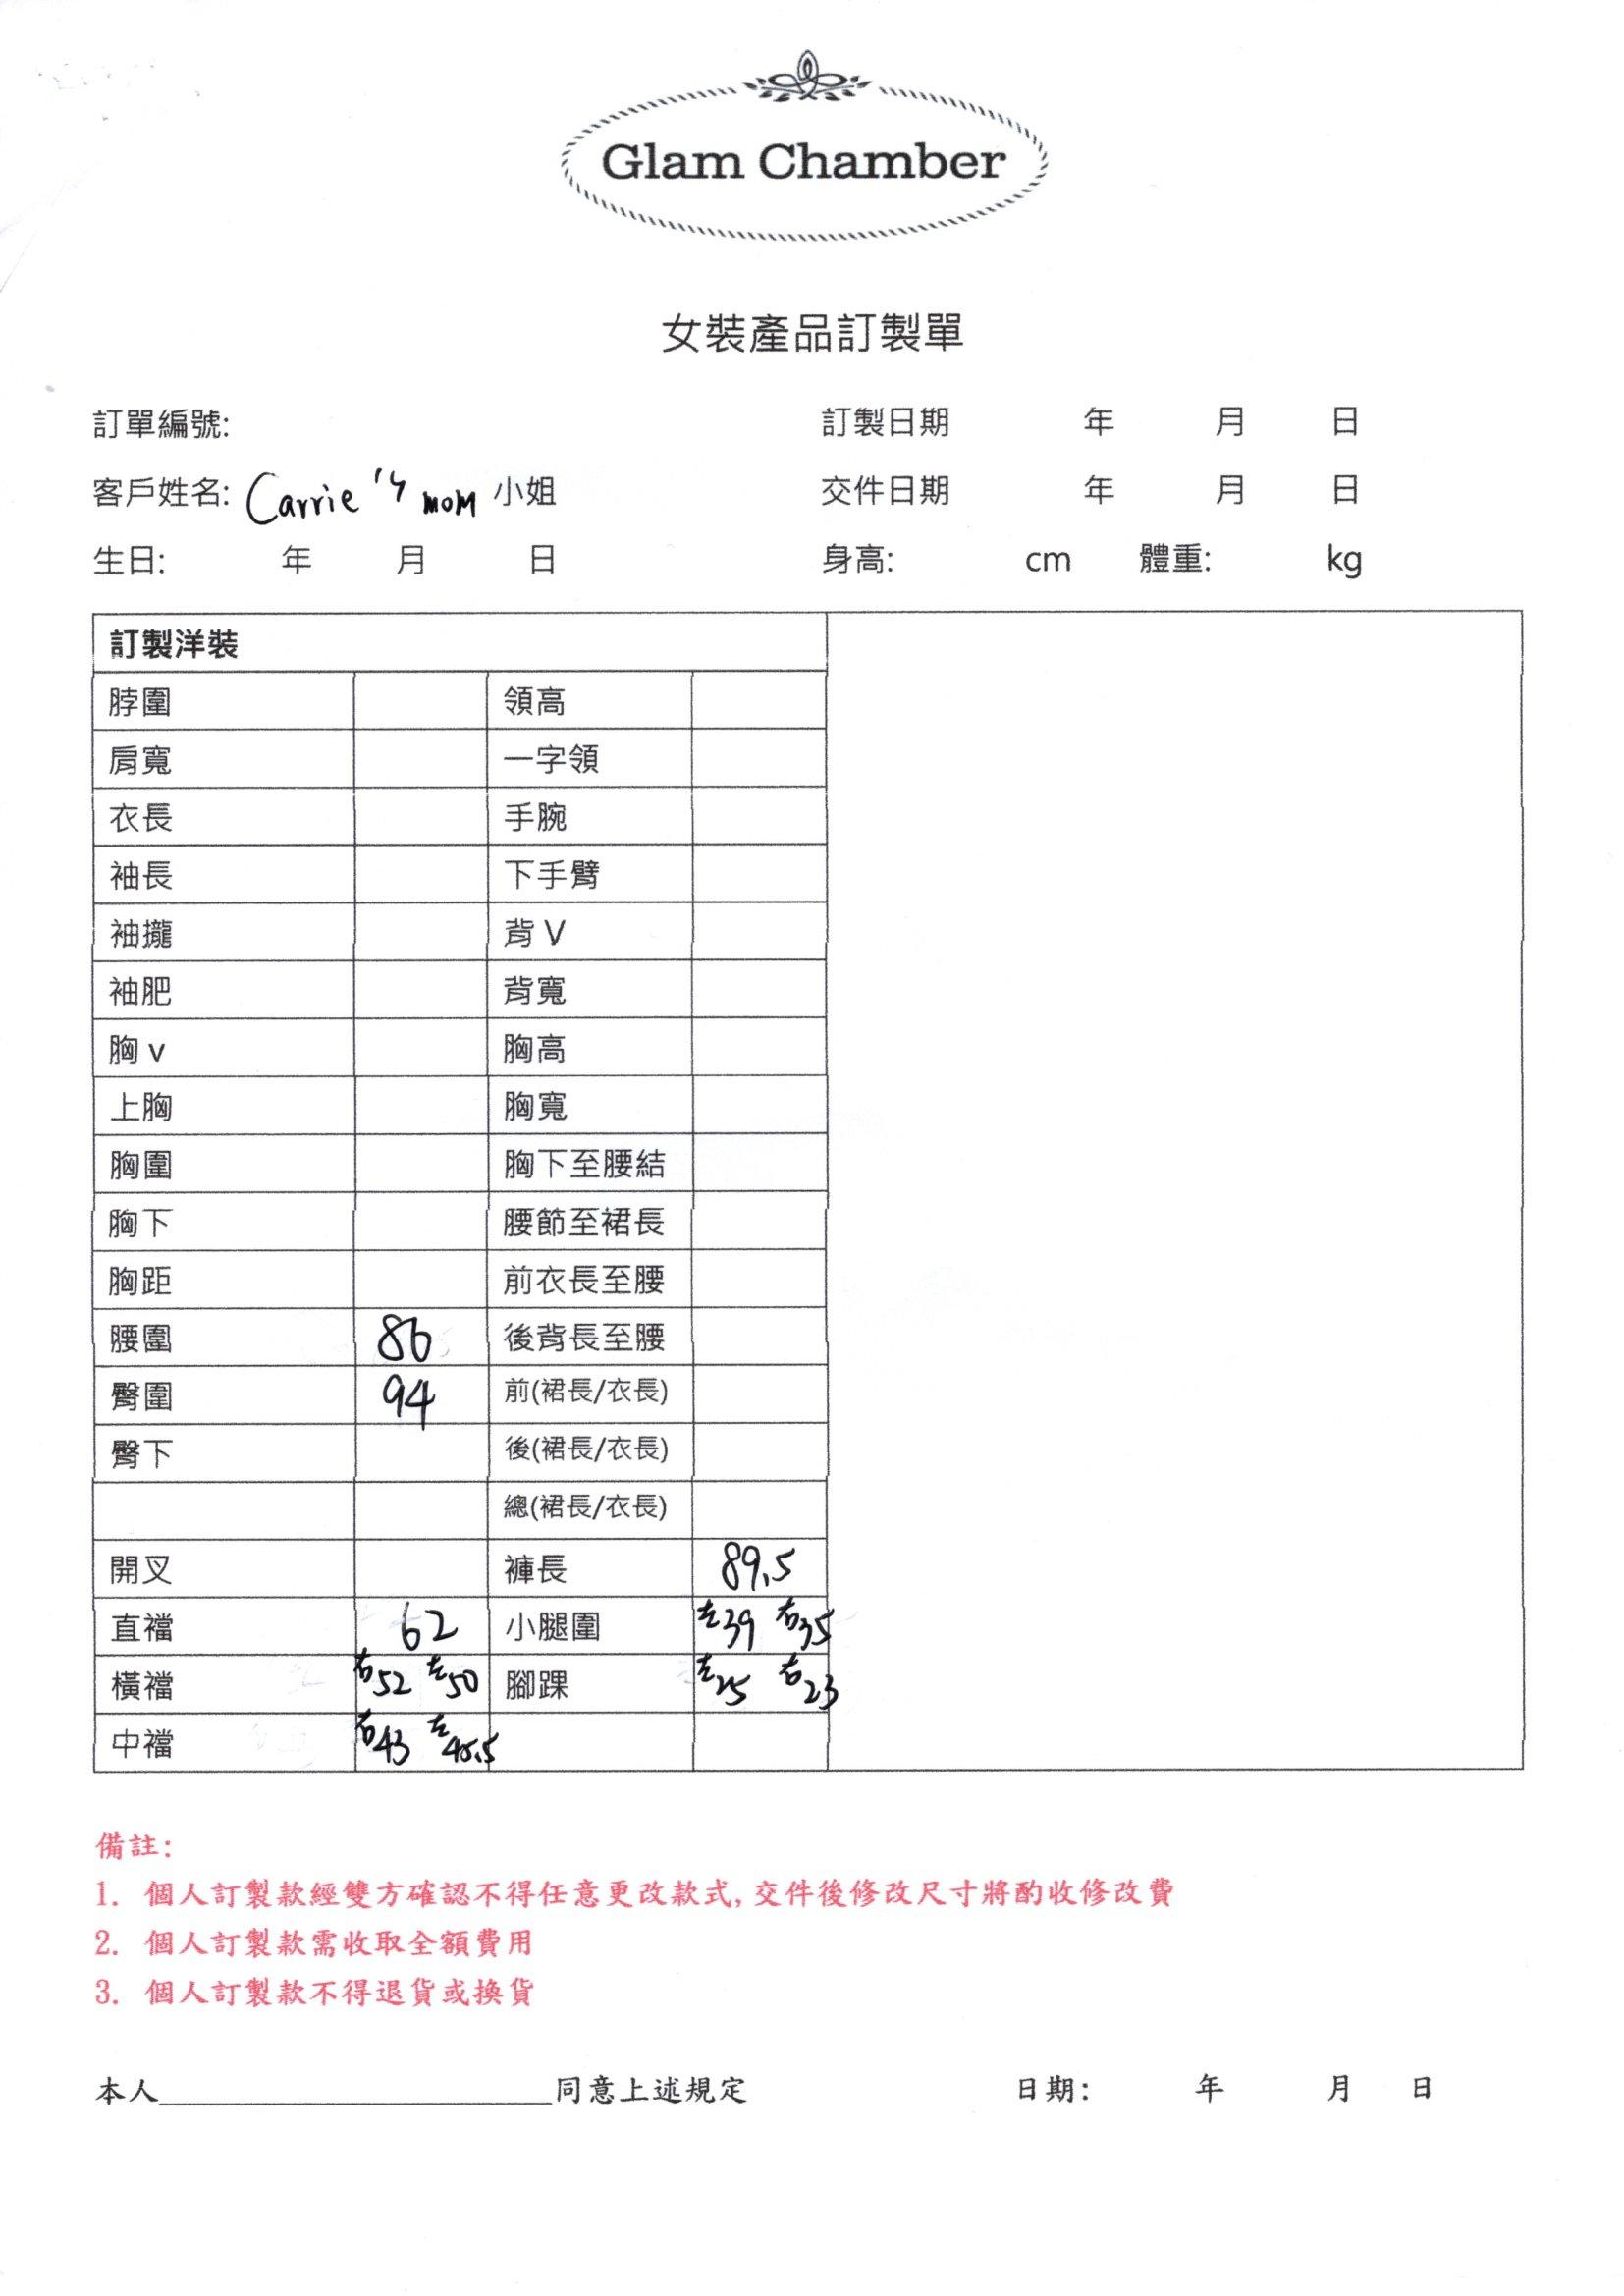 Glam Chamber
女裝產品訂製單
訂單編號: 訂製日期 年 月 日
客戶姓名: Carrie's mom 小姐 交件日期 年 月 日
生日: 年 月 日 身高: cm 體重: kg
訂製洋裝
脖圍 領高
肩寬 一字領
衣長 手腕
袖長 下手臂
袖攏 背 V
袖肥 背寬
胸 v 胸高
上胸 胸寬
胸圍 胸下至腰結
胸下 腰節至裙長
胸距 前衣長至腰
腰圍 86 後背長至腰
臀圍 94 前(裙長/衣長)
臀下 後(裙長/衣長)
總(裙長/衣長)
開叉 褲長 89.5
直襠 62 小腿圍 左39 右35
橫襠 右52 左50 腳踝 左25 右23
中襠 右43 左45.5
備註:
1. 個人訂製款經雙方確認不得任意更改款式,交件後修改尺寸將酌收修改費
2. 個人訂製款需收取全額費用
3. 個人訂製款不得退貨或換貨
本人 同意上述規定 日期: 年 月 日